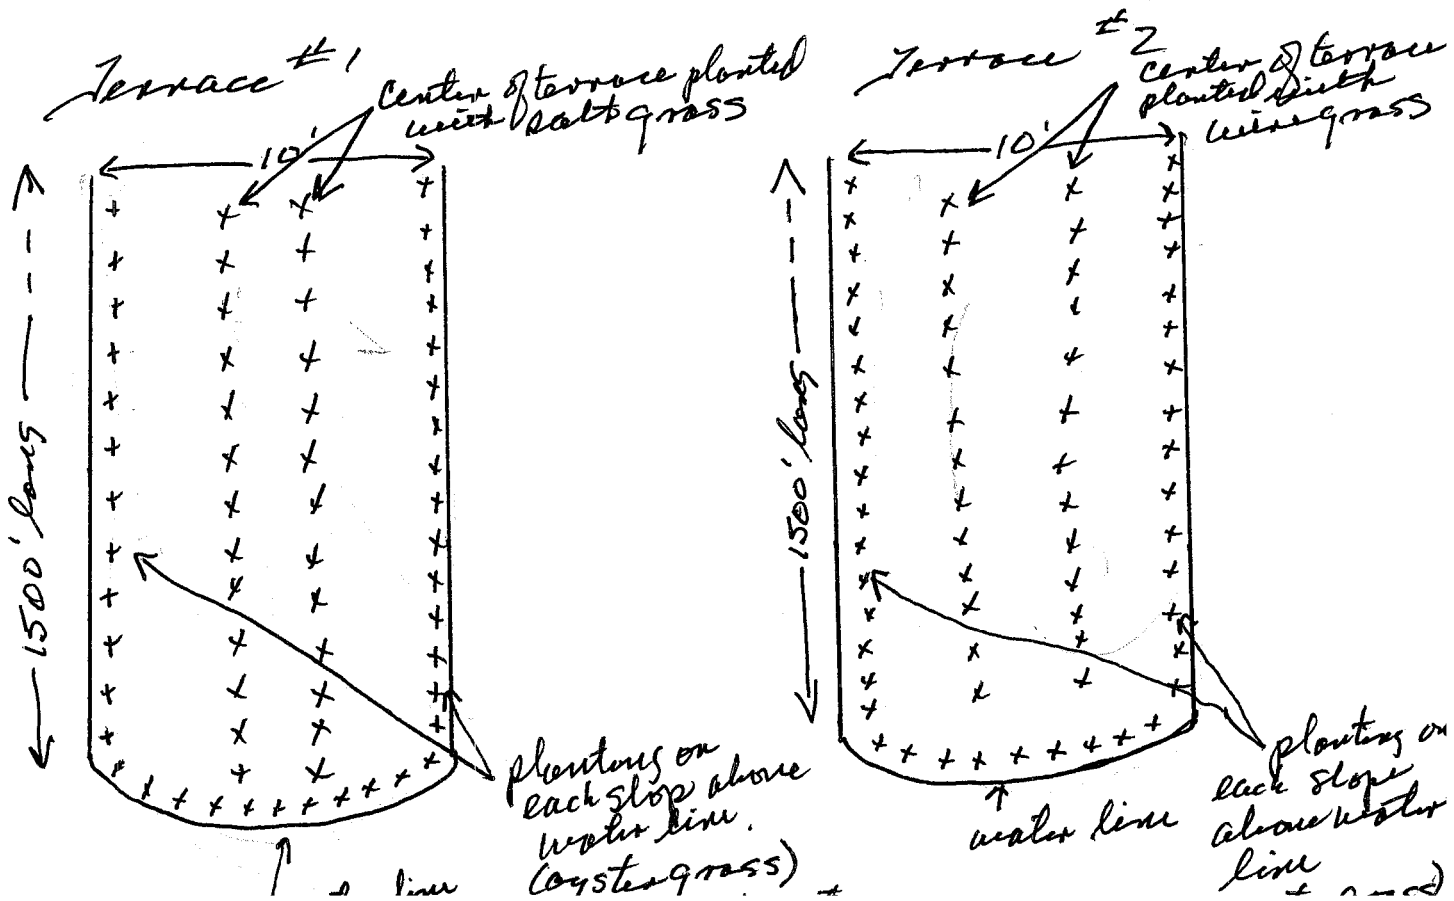 Terrace #1
center of terrace planted
with salt grass
10'
1500' long
planting on
each slop above
water line.
(oystergrass)
line
Terrace #2
center of terrace
planted with
wiregrass
10'
1500' long
water line
planting on
each slope
above water
line
grass)